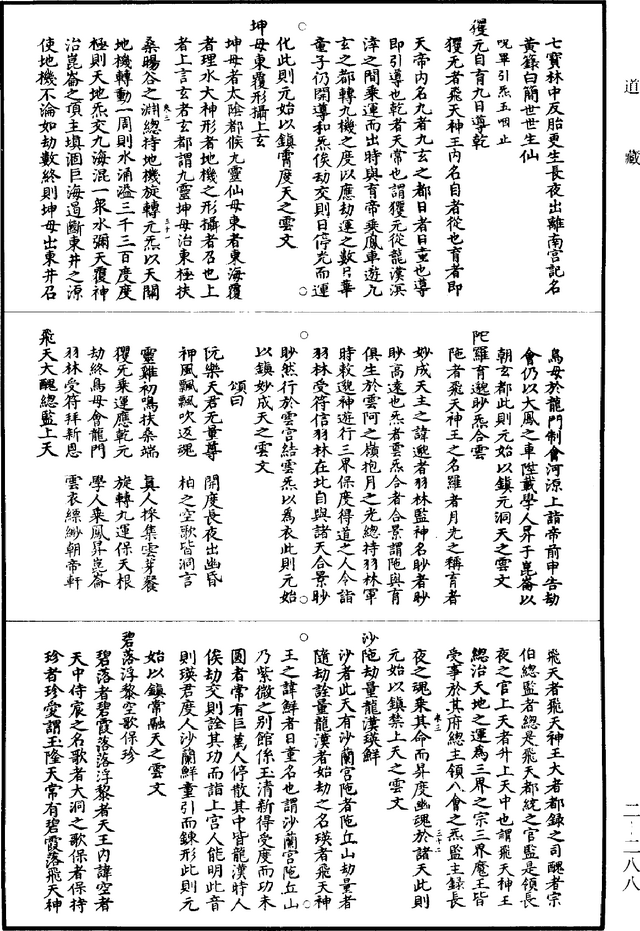 道藏
七寶林中反胎更生長夜出離南宮記名
黃籙白簡世世生仙
呪畢引炁五咽止
玃元自育九日導乾
玃元者飛天神王內名自者從也育者即
天帝內名九者九玄之都日者日童也導
即引導也乾者天常也謂玃元從龍漢溟
涬之間乘運而出時與育帝乘鳳車遊九
玄之都轉九機之度以應劫運之數片華
童子仍開導和炁俟劫交則日停光而運
化此則元始以鎮霄度天之雲文
坤母東覆形攝上玄
坤母者太陰都候九靈仙母東者東海覆
者理水大神形者地機之形攝者召也上
者上言玄者玄都謂九靈坤母治東極扶
桑暘谷之淵總持地機旋轉元炁以天關
地機轉動一周則水涌溢三千三百度度
極則天地炁交九海混一衆水彌天覆神
治崑崙之頂主填涸巨海遏斷東井之源
使地機不淪如劫數終則坤母出東井召
鳥母於龍門制會河源上詣帝前申告劫
會仍以大鳳之車陞載學人昇于崑崙以
朝玄都此則元始以鎮元洞天之雲文
陀羅育邈眇炁合雲
陁者飛天神王之名羅者月光之稱育者
妙成天主之諱邈者羽林監神名眇者眇
眇高遠也炁者雲炁合者合景謂陁與育
俱生於雲阿之嶺抱月之光總持羽林軍
時敕邈神遊行三界保度得道之人今詣
羽林受符信羽林在北自與諸天合景眇
眇然行於雲宮結雲炁以為衣此則元始
以鎮妙成天之雲文
頌曰
阮樂天君无量尊 開度長夜出幽昏
神風飄飄吹返魂 柏之空歌皆洞言
靈雞初鳴扶桑端 真人採集雲芽餐
玃元乘運應乾元 旋轉九運保天根
劫終鳥母會龍門 學人乘鳳昇崑崙
羽林受符拜新恩 雲衣縹緲朝帝軒
飛天大醜總監上天
飛天者飛天神王大者都錄之司醜者宗
伯總監者總是飛天都統之官監是領長
夜之官上天者升上天中也謂飛天神王
總治天地之運為三界之宗三界魔王皆
受事於其府總主領八會之炁監主錄長
夜之魂乘其命而昇度幽魂於諸天此則
元始以鎮禁上天之雲文
沙陁劫量龍漢瑛鮮
沙者此天有沙蘭宮陁者陁丘山劫量者
隨劫詮量龍漢者始劫之名瑛者飛天神
王之諱鮮者日童名也謂沙蘭宮陁丘山
乃紫微之別館係玉清新得受度而功未
圓者常有巨萬人停散其中皆龍漢時人
俟劫交則詮其功而詣上宮人能明此音
則瑛君度人沙蘭鮮童引而鍊形此則元
始以鎮常融天之雲文
碧落浮黎空歌保珍
碧落者碧霞落落浮黎者天王內諱空者
天中侍宸之名歌者大洞之歌保者保持
珍者珍愛謂玉隆天常有碧霞落飛天神
二-二八八